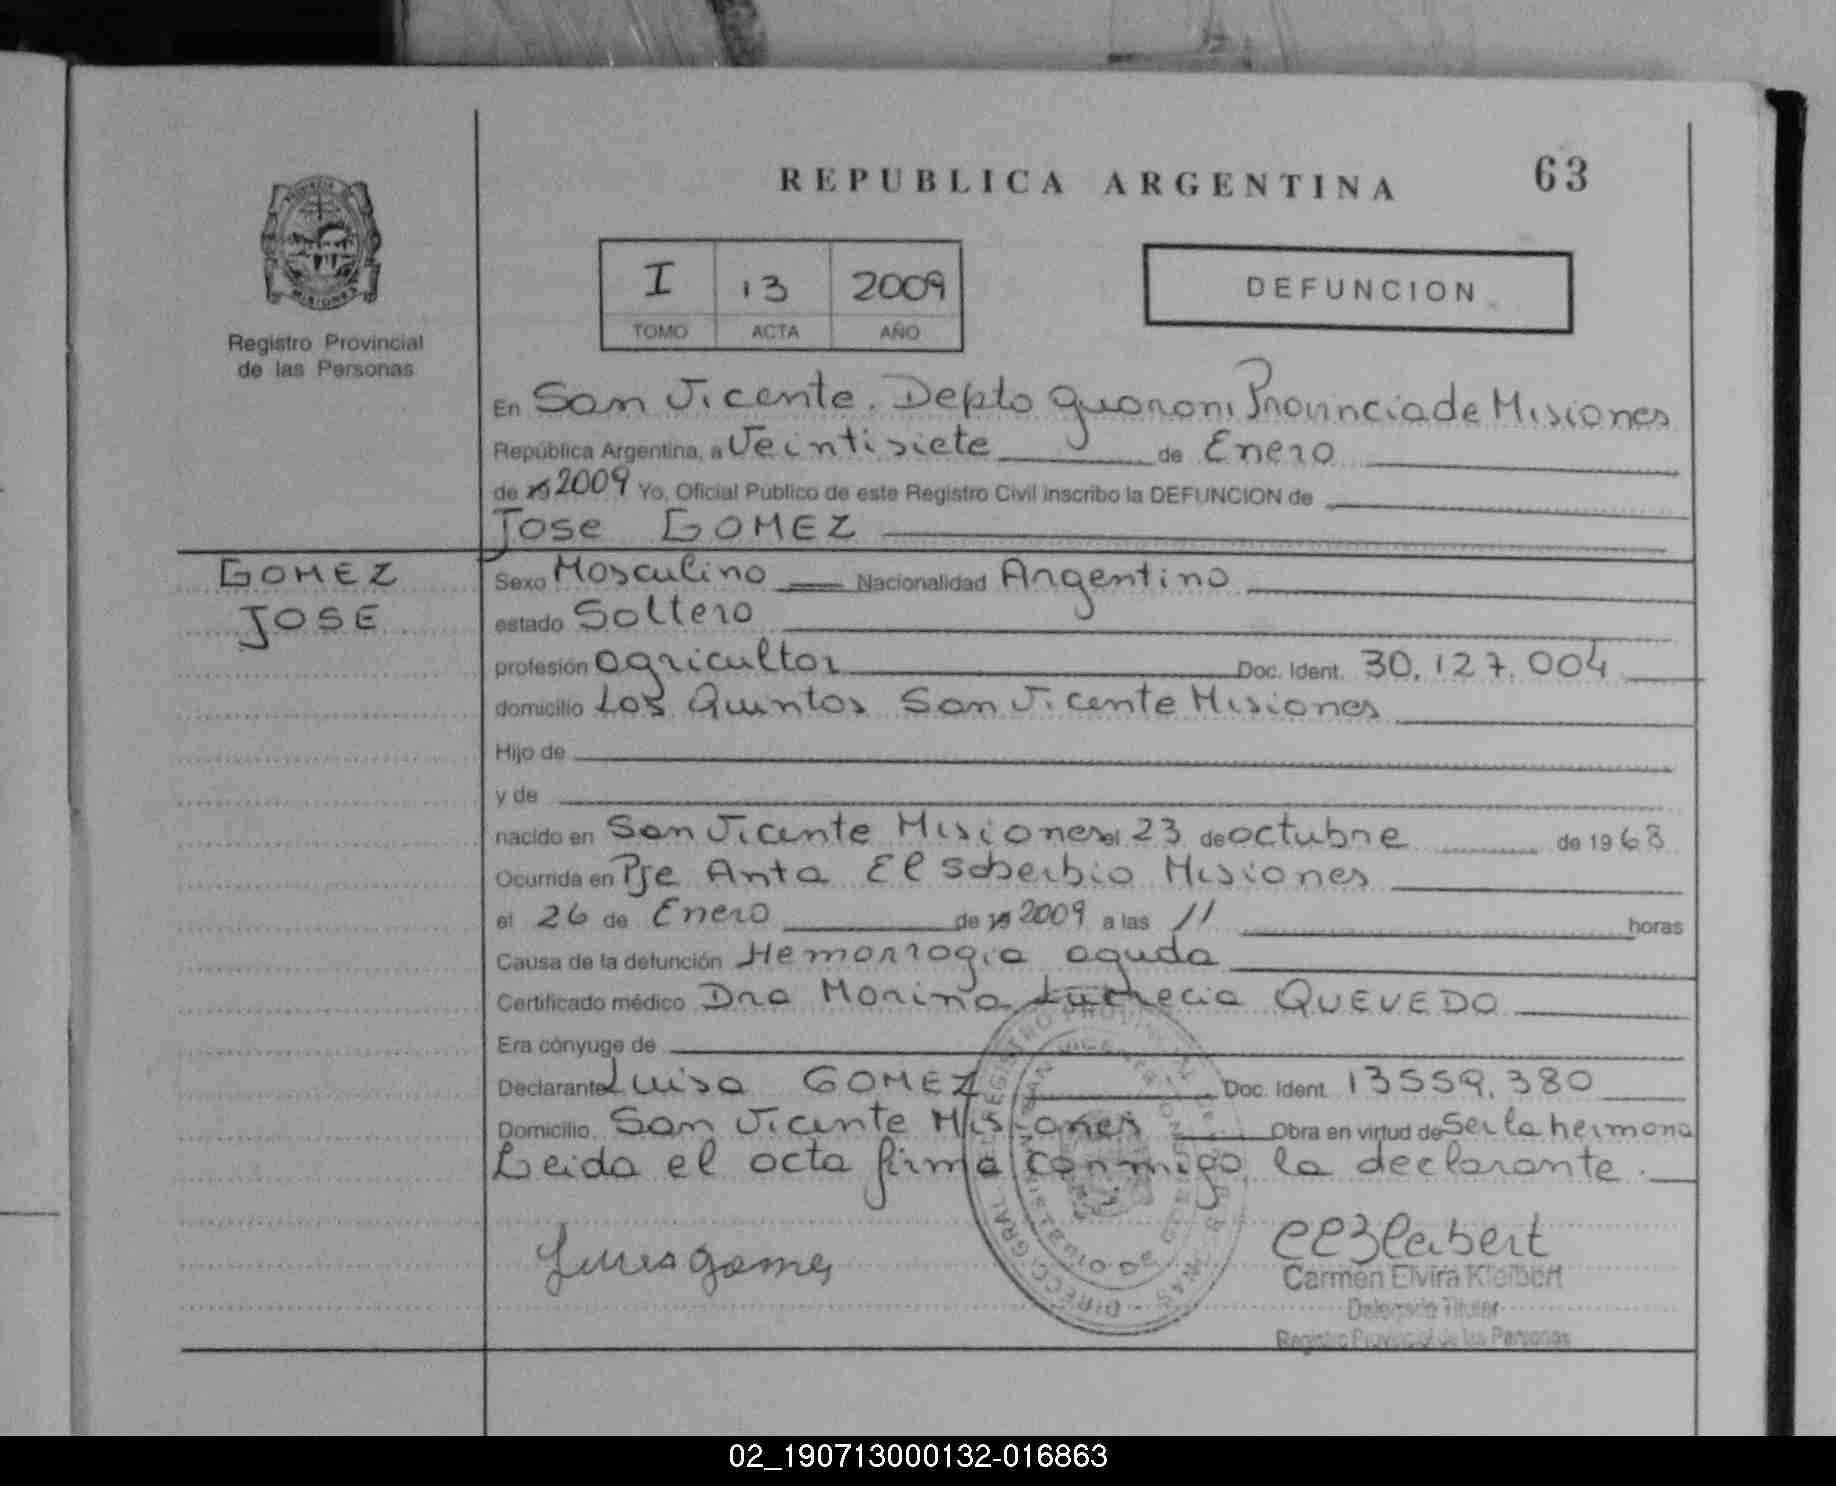 REPUBLICA ARGENTINA 63
MISIONES
Registro Provincial
de las Personas
I 13 2009
TOMO ACTA AÑO
DEFUNCION
En San Vicente. Depto Guarani Provincia de Misiones
República Argentina, a Veintisiete de Enero
de 19 2009 Yo, Oficial Público de este Registro Civil inscribo la DEFUNCION de
Jose GOMEZ
GOMEZ
JOSE
Sexo Masculino Nacionalidad Argentino
estado Soltero
profesión agricultor Doc. Ident. 30.127.004
domicilio Los Quintos San Vicente Misiones
Hijo de
y de
nacido en San Vicente Misiones el 23 de octubre de 1968
Ocurrida en Pje Anta El Soberbio Misiones
el 26 de Enero de 19 2009 a las 11 horas
Causa de la defunción Hemorragia aguda
Certificado médico Dra Marina Lucrecia QUEVEDO
Era cónyuge de
Declarante Luisa GOMEZ Doc. Ident. 13559.380
Domicilio San Vicente Misiones Obra en virtud de Ser la hermana
Leida el acta firma conmigo la declarante.
Carmen Elvira Kleibert
Delegada Titular
Registro Provincial de las Personas
02_190713000132-016863